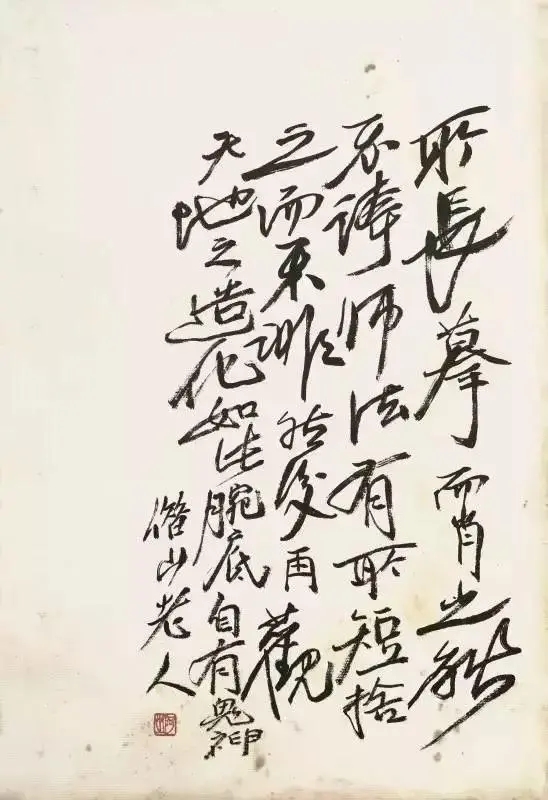 所長摹而肖之能
不謗師法有所短捨
之而不誹然後再觀
天地之造化如此腕底自有鬼神
借山老人